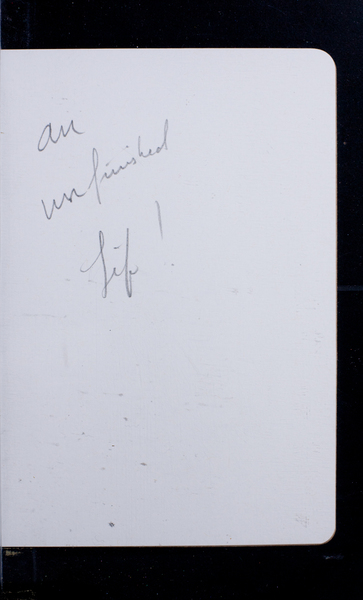 an
unfinished
Life!